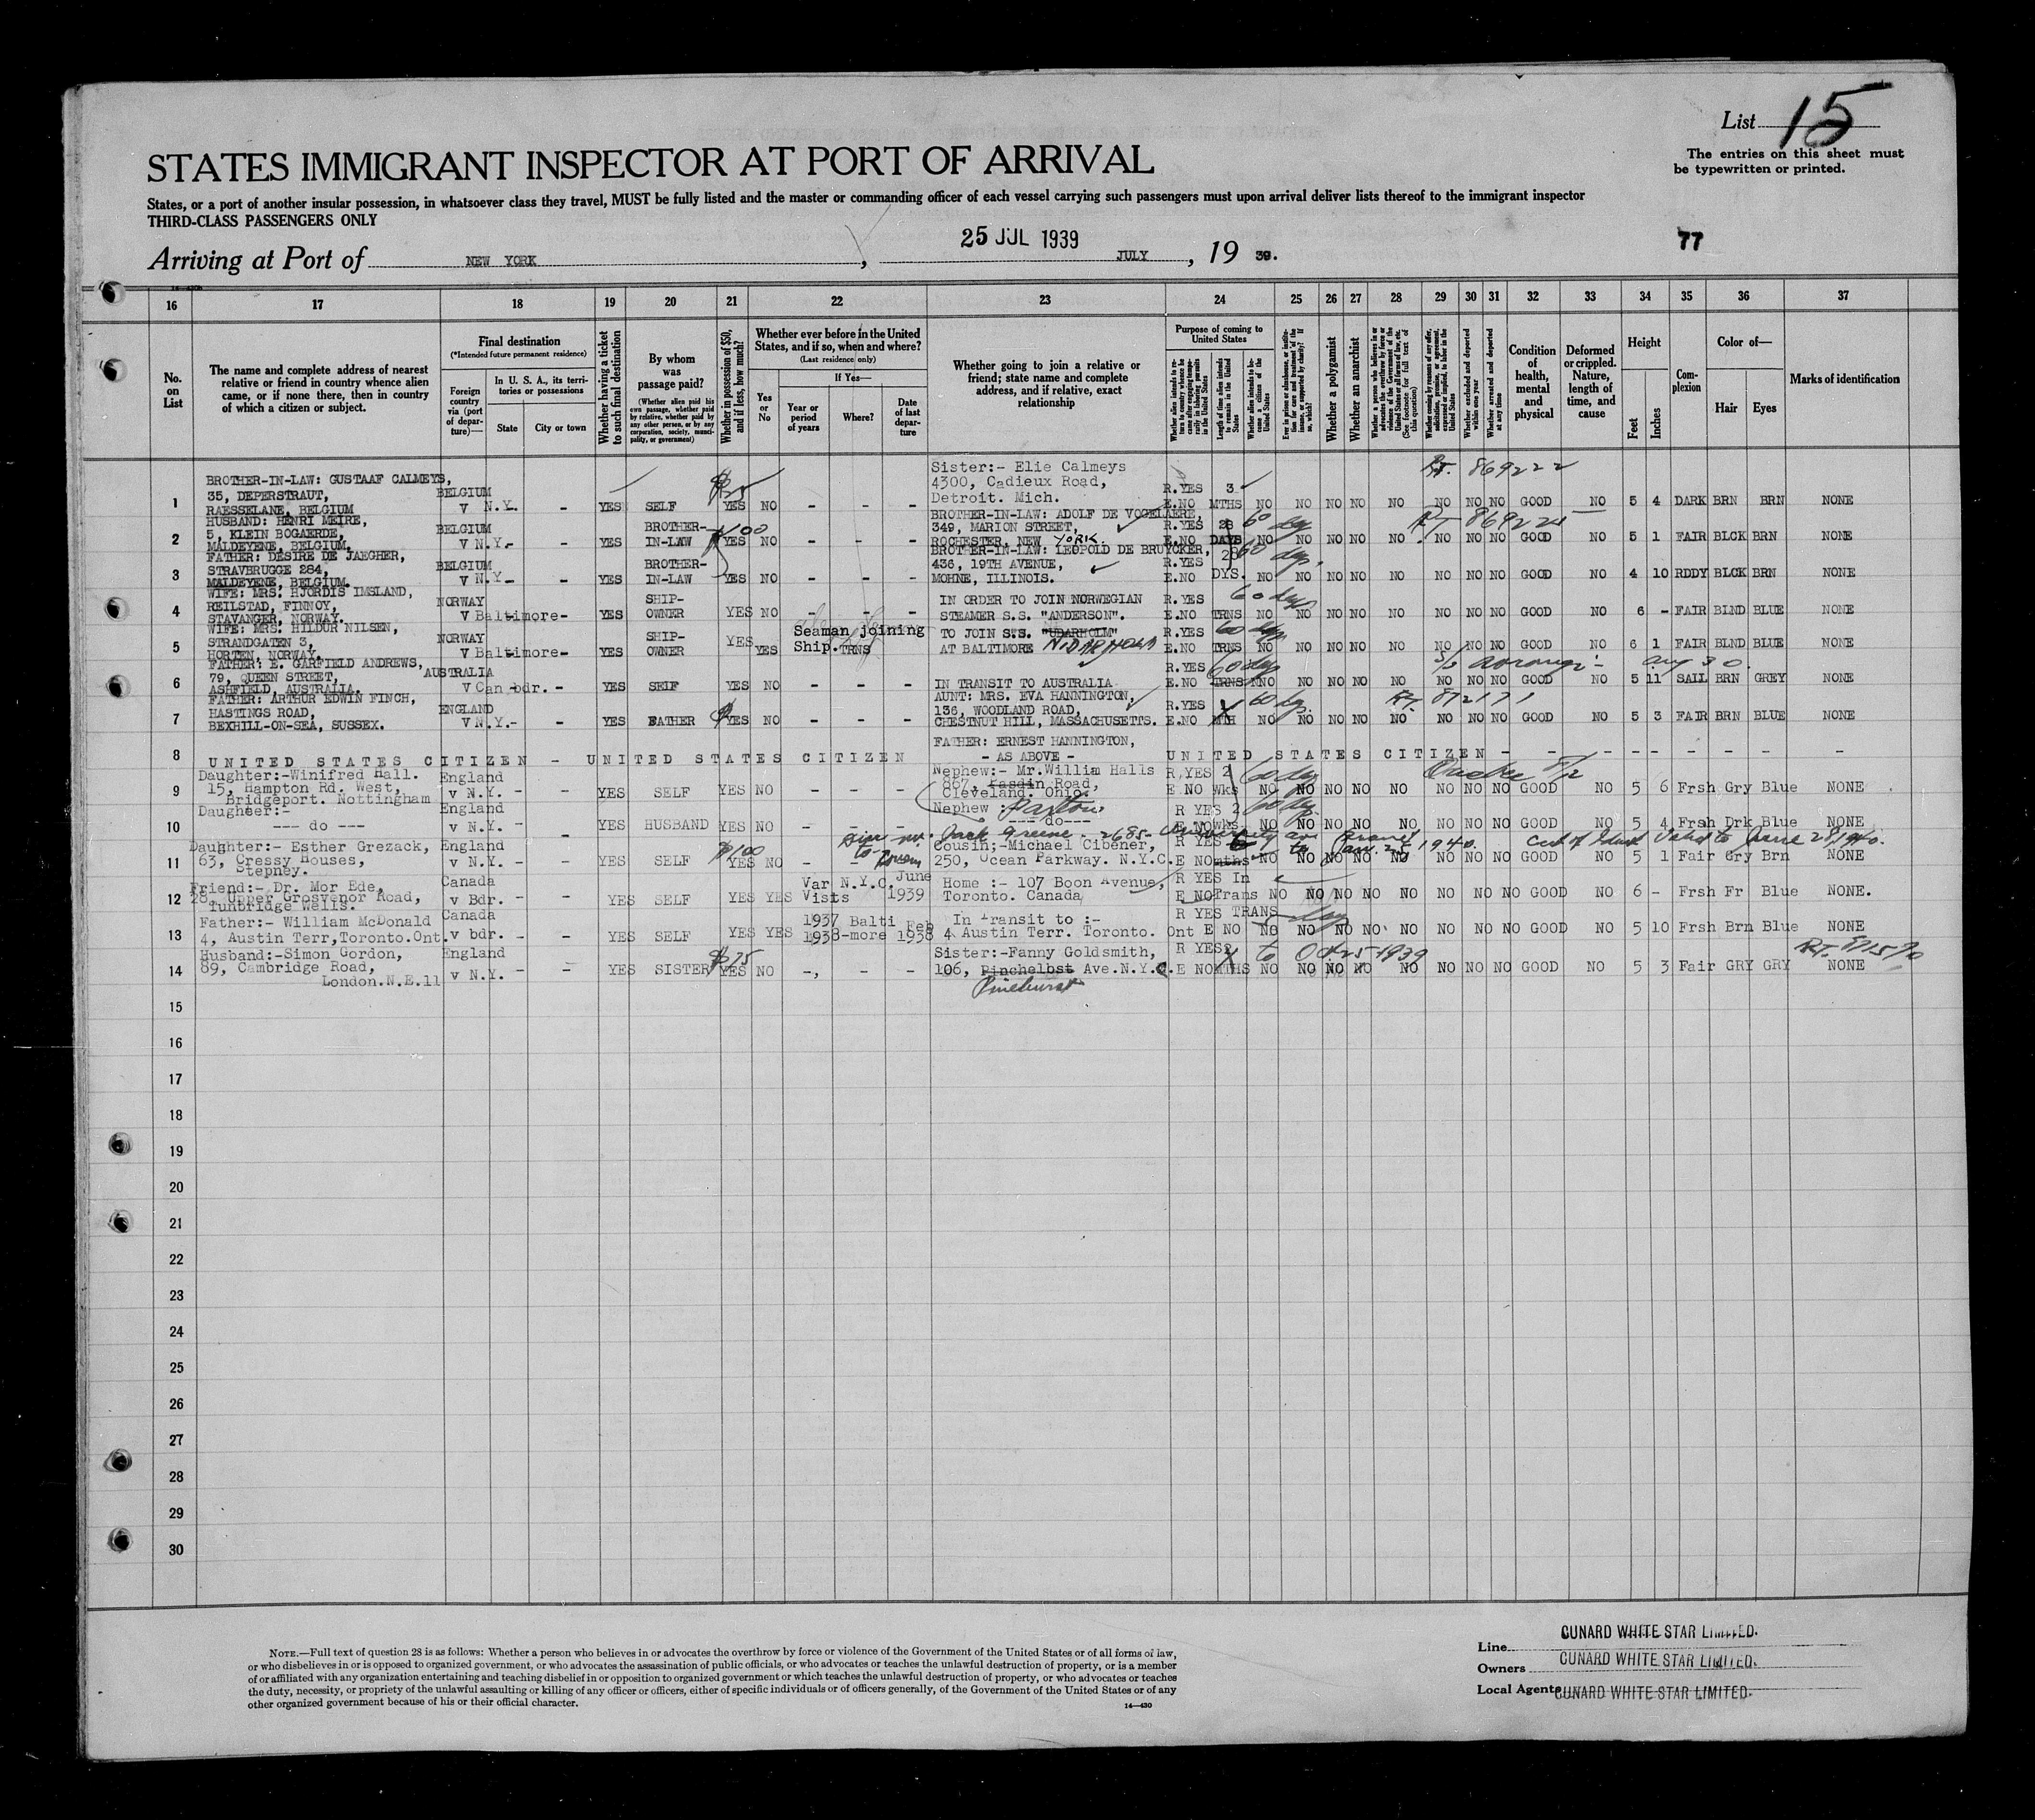 List 15
The entries on this sheet must
be typewritten or printed.
STATES IMMIGRANT INSPECTOR AT PORT OF ARRIVAL
States, or a port of another insular possession, in whatsoever class they travel, MUST be fully listed and the master or commanding officer of each vessel carrying such passengers must upon arrival deliver lists thereof to the immigrant inspector
THIRD-CLASS PASSENGERS ONLY
77
Arriving at Port of NEW YORK, 25 JUL 1939 JULY, 19 39.
16 17 18 19 20 21 22 23 24 25 26 27 28 29 30 31 32 33 34 35 36 37
No. on List
The name and complete address of nearest
relative or friend in country whence alien
came, or if none there, then in country
of which a citizen or subject.
Final destination
(*Intended future permanent residence)
Foreign country via (port of departure)—
In U. S. A., its territories or possessions
State
City or town
Whether having a ticket to such final destination
By whom was passage paid?
(Whether alien paid his own passage, whether paid by relative, whether paid by any other person, or by any corporation, society, municipality, or government)
Whether in possession of $50, and if less, how much?
Whether ever before in the United
States, and if so, when and where?
(Last residence only)
Yes or No
If Yes—
Year or period of years
Where?
Date of last departure
Whether going to join a relative or
friend; state name and complete
address, and if relative, exact
relationship
Purpose of coming to United States
Whether alien intends to return to country whence he came after engaging temporarily in laboring pursuits in the United States
Length of time alien intends to remain in the United States
Whether alien intends to become a citizen of the United States
Ever in prison or almshouse, or institution for care and treatment of the insane, or supported by charity? If so, which?
Whether a polygamist
Whether an anarchist
(See footnote for full text of this question)
Whether excluded and deported within one year
Whether arrested and deported at any time
Condition of health, mental and physical
Deformed or crippled. Nature, length of time, and cause
Height
Feet
Inches
Complexion
Color of—
Hair
Eyes
Marks of identification
Sister:- Elie Calmeys
BROTHER-IN-LAW: GUSTAAF CALMEYS, 4300, Cadieux Road, 869222
35, DEPERSTRAUT, BELGIUM $25 Detroit. Mich. R.YES 3
1 RAESSELANE, BELGIUM V N.Y. - YES SELF YES NO - - - E.NO MTHS NO NO NO NO NO NO NO NO GOOD NO 5 4 DARK BRN BRN NONE
HUSBAND: HENRI MEIRE, BROTHER-IN-LAW: ADOLF DE VOGELAERE,
5, KLEIN BOGAERDE, BELGIUM BROTHER- 100 349, MARION STREET, R.YES 28 60 dys
2 MALDEYENE, BELGIUM. V N.Y.- - YES IN-LAW YES NO - - - ROCHESTER, NEW YORK E.NO DAYS NO NO NO NO NO NO NO NO GOOD NO 5 1 FAIR BLCK BRN NONE
FATHER: DESIRE DE JAEGHER, BROTHER-IN-LAW: LEOPOLD DE BRUYCKER,
STRAVBRUGGE 284, BELGIUM BROTHER- 436, 19TH AVENUE, R.YES 28 60 dys.
3 MALDEYENE, BELGIUM. V N.Y.- - YES IN-LAW YES NO - - - MOHNE, ILLINOIS. E.NO DYS. NO NO NO NO NO NO NO NO GOOD NO 4 10 RDDY BLCK BRN NONE
WIFE: MRS. HJORDIS IMSLAND,
REILSTAD, FINNOY, NORWAY SHIP- IN ORDER TO JOIN NORWEGIAN R.YES 60 dys
4 STAVANGER, NORWAY. V Baltimore- YES OWNER YES NO - - - STEAMER S.S. "ANDERSON". E.NO TRNS NO NO NO NO NO NO NO NO GOOD NO 6 - FAIR BLND BLUE NONE
WIFE: MRS. HILDUR NILSEN,
STRANDGATEN 3, NORWAY SHIP- YES Seaman joining TO JOIN S.S. "UDARHOLM" R.YES 60 dys
5 HORTEN, NORWAY. V Baltimore- YES OWNER YES Ship. TRNS AT BALTIMORE NIDARHOLM E.NO TRNS NO NO NO NO NO NO NO NO GOOD NO 6 1 FAIR BLND BLUE NONE
FATHER: E. GARFIELD ANDREWS, S/S Aorangi - Aug 30.
79, QUEEN STREET, AUSTRALIA R.YES 60 dys
6 ASHFIELD, AUSTRALIA. V Can bdr. - YES SELF YES NO - - - IN TRANSIT TO AUSTRALIA E.NO TRNS NO NO NO NO NO NO NO NO GOOD NO 5 11 SALL BRN GREY NONE
FATHER: ARTHUR EDWIN FINCH, AUNT: MRS. EVA HANNINGTON,
HASTINGS ROAD, ENGLAND 136, WOODLAND ROAD, R.YES 60 dys. 872171
7 BEXHILL-ON-SEA, SUSSEX. V N.Y.- - YES FATHER YES NO - - - CHESTNUT HILL, MASSACHUSETTS. E.NO MTH NO NO NO NO NO NO NO NO GOOD NO 5 3 FAIR BRN BLUE NONE
FATHER: ERNEST HANNINGTON,
8 UNITED STATES CITIZEN - UNITED STATES CITIZEN - AS ABOVE - UNITED STATES CITIZEN - - - - - - - - -
Daughter:-Winifred Hall. England Nephew:- Mr.William Halls R YES 2 60 dys
9 15, Hampton Rd. West, v N.Y. - - YES SELF YES NO - - - 867, Kasdin Road, E NO Wks NO NO NO NO NO NO NO NO GOOD NO 5 6 Frsh Gry Blue NONE
Bridgeport. Nottingham Cleveland. Ohio.
Daugheer:- England Nephew : R YES 2 60 dys
10 --- do --- v N.Y. - - YES HUSBAND YES NO - - - ---do--- E NO wks NO NO NO NO NO NO NO NO GOOD NO 5 4 Frsh Drk Blue NONE
Jack Greene. 2685 University av Bronx
to Jan. 25 1940. Valid to June 28, 1940.
Daughter:- Esther Grezack, England $100 Cousin;-Michael Cibener, R YES 6
11 63, Cressy Houses, v N.Y. - - YES SELF YES NO - - 250, Ocean Parkway. N.Y.C. E NO mths NO NO NO NO NO NO NO NO GOOD NO 5 1 Fair Gry Brn NONE
Stepney.
Friend:- Dr. Mor Ede, Canada Var N.Y.C. June Home :- 107 Boon Avenue, R YES In
12 28, Upper Grosvenor Road, v Bdr. - - YES SELF YES YES Vists 1939 Toronto. Canada E NO Trans NO NO NO NO NO NO NO NO GOOD NO 6 - Frsh Fr Blue NONE.
Tunbridge Wells.
Father:- William McDonald Canada 1937 Balti Feb In Transit to :- R YES TRANS
13 4, Austin Terr,Toronto.Ont. v bdr. - - YES SELF YES YES 1938-more 1938 4 Austin Terr. Toronto. Ont E NO NO NO NO NO NO NO NO NO GOOD NO 5 10 Frsh Brn Blue NONE
Husband:-Simon Gordon, England $75 Sister:-Fanny Goldsmith, R YES to Oct 25-1939
14 89, Cambridge Road, v N.Y. - - YES SISTER YES NO -, - - 106, Pinchelbst Ave.N.Y.C. E NO MTHS NO NO NO NO NO NO NO NO GOOD NO 5 3 Fair GRY GRY NONE
London.N.E.11 Pinehurst
15
16
17
18
19
20
21
22
23
24
25
26
27
28
29
30
NOTE.—Full text of question 28 is as follows: Whether a person who believes in or advocates the overthrow by force or violence of the Government of the United States or of all forms of law,
or who disbelieves in or is opposed to organized government, or who advocates the assassination of public officials, or who advocates or teaches the unlawful destruction of property, or is a member
of or affiliated with any organization entertaining and teaching disbelief in or opposition to organized government or which teaches the unlawful destruction of property, or who advocates or teaches
the duty, necessity, or propriety of the unlawful assaulting or killing of any officer or officers, either of specific individuals or of officers generally, of the Government of the United States or of any
other organized government because of his or their official character.
14—430
Line CUNARD WHITE STAR LIMITED.
Owners CUNARD WHITE STAR LIMITED.
Local Agents CUNARD WHITE STAR LIMITED.